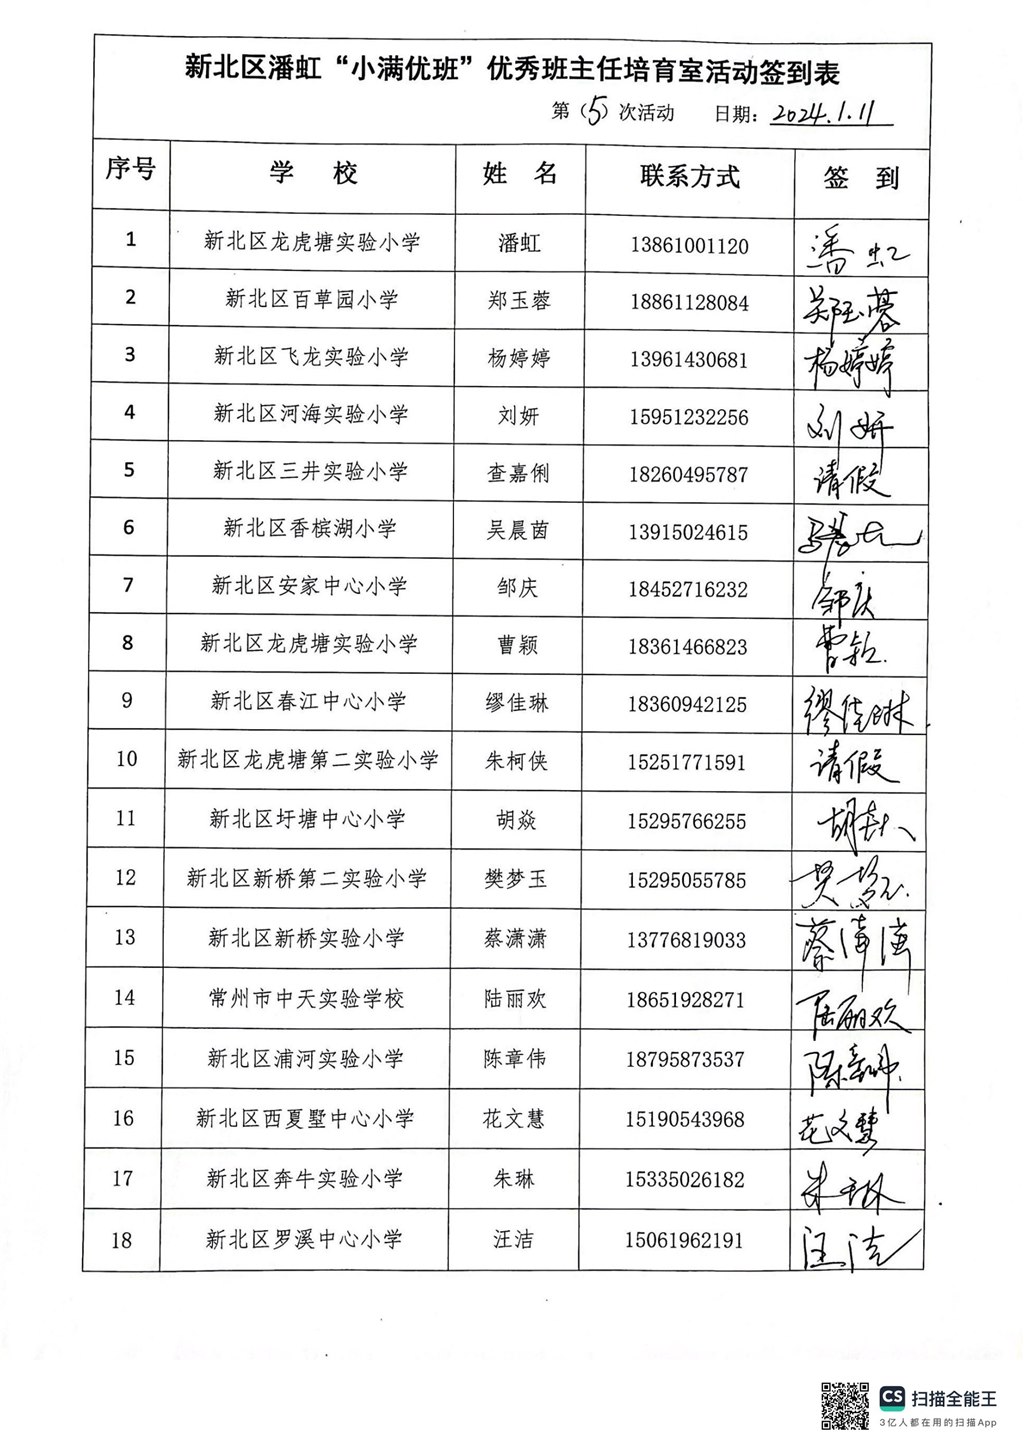 新北区潘虹“小满优班”优秀班主任培育室活动签到表
第（5）次活动 日期：2024.1.11
序号 学 校 姓 名 联系方式 签 到
1 新北区龙虎塘实验小学 潘虹 13861001120 潘虹
2 新北区百草园小学 郑玉蓉 18861128084 郑玉蓉
3 新北区飞龙实验小学 杨婷婷 13961430681 杨婷婷
4 新北区河海实验小学 刘妍 15951232256 刘妍
5 新北区三井实验小学 查嘉俐 18260495787 请假
6 新北区香槟湖小学 吴晨茵 13915024615
7 新北区安家中心小学 邹庆 18452716232 邹庆
8 新北区龙虎塘实验小学 曹颖 18361466823 曹颖
9 新北区春江中心小学 缪佳琳 18360942125 缪佳琳
10 新北区龙虎塘第二实验小学 朱柯侠 15251771591 请假
11 新北区圩塘中心小学 胡焱 15295766255 胡焱
12 新北区新桥第二实验小学 樊梦玉 15295055785 樊梦玉
13 新北区新桥实验小学 蔡潇潇 13776819033 蔡潇潇
14 常州市中天实验学校 陆丽欢 18651928271 陆丽欢
15 新北区浦河实验小学 陈章伟 18795873537 陈章伟
16 新北区西夏墅中心小学 花文慧 15190543968 花文慧
17 新北区奔牛实验小学 朱琳 15335026182 朱琳
18 新北区罗溪中心小学 汪洁 15061962191 汪洁
CS 扫描全能王
3亿人都在用的扫描App